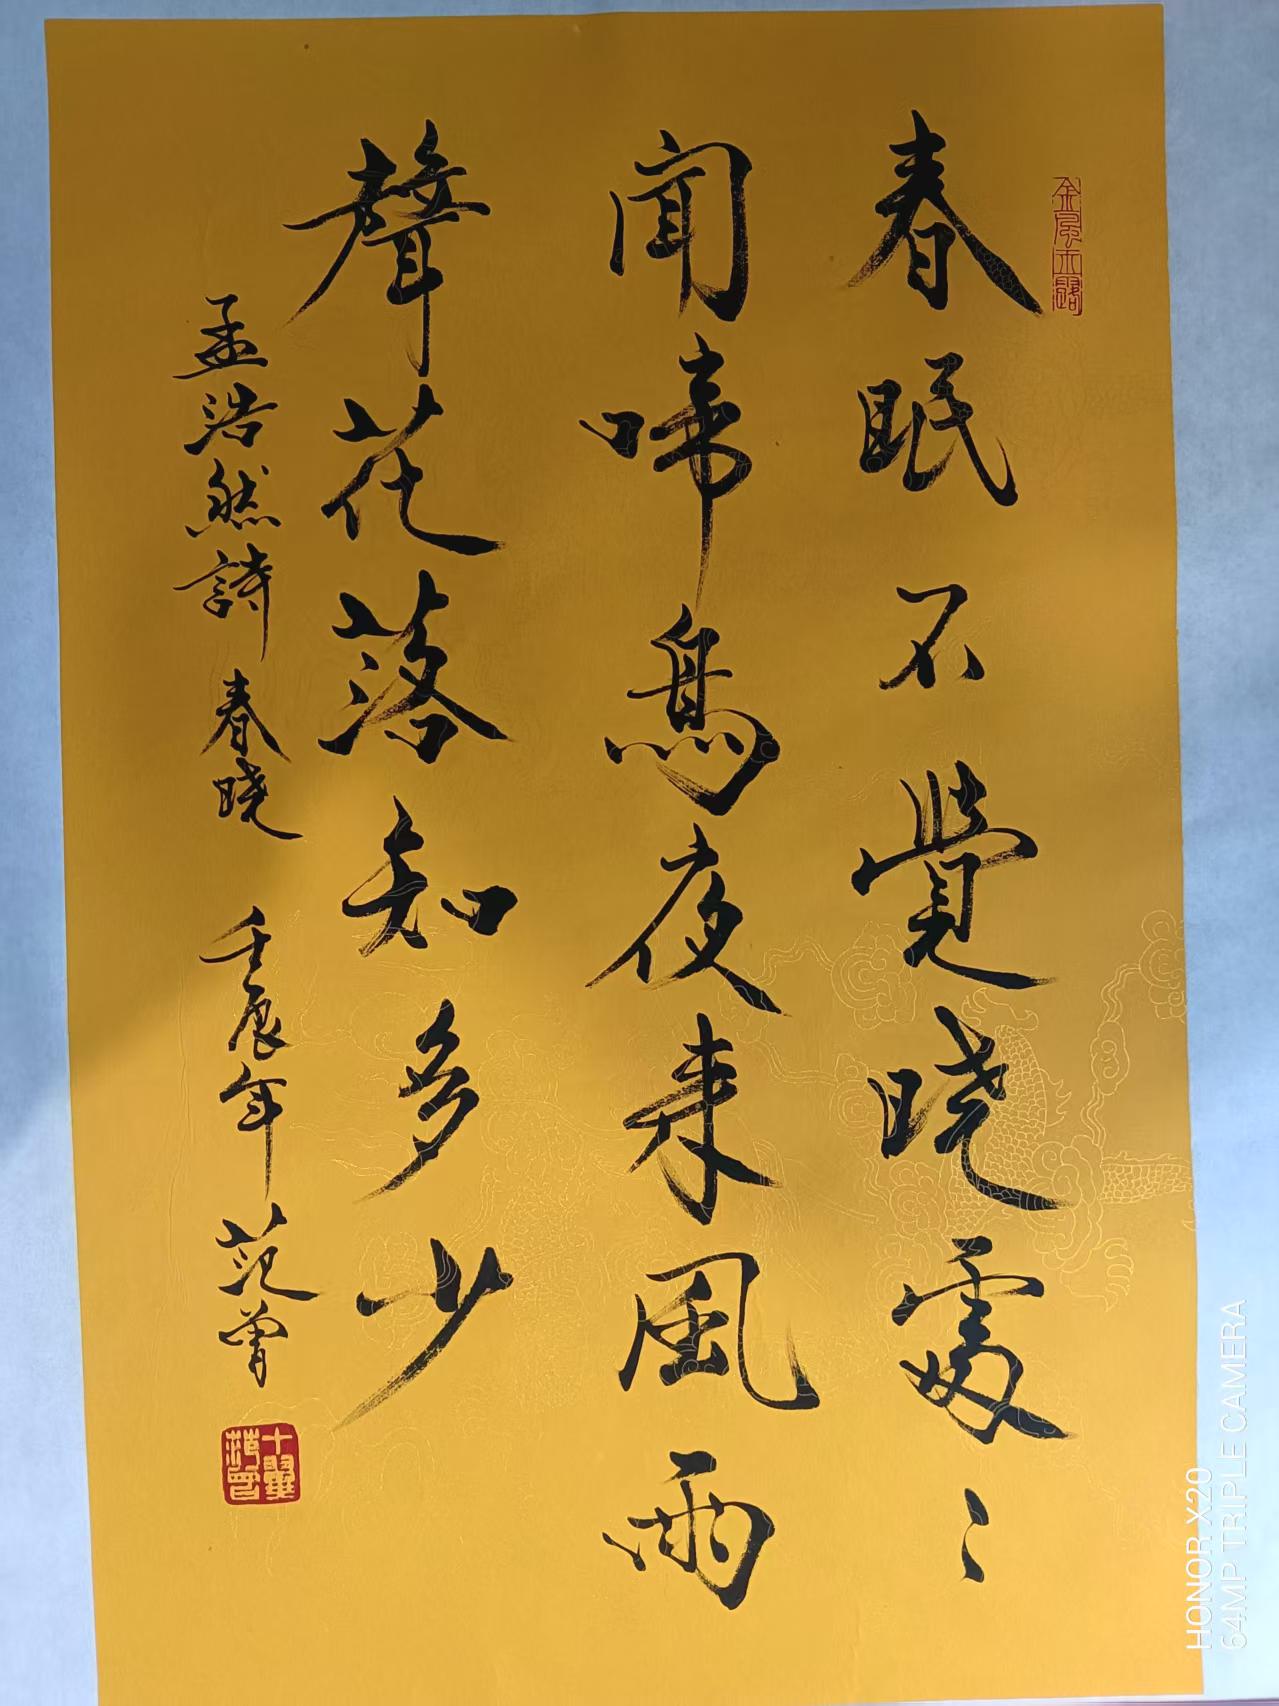 春眠不覺晓處〻
聞啼鳥夜来風雨
聲花落知多少
孟浩然詩 春晓 壬辰年 范曾
金風玉露
十翼
范曾
HONOR X20
64MP TRIPLE CAMERA